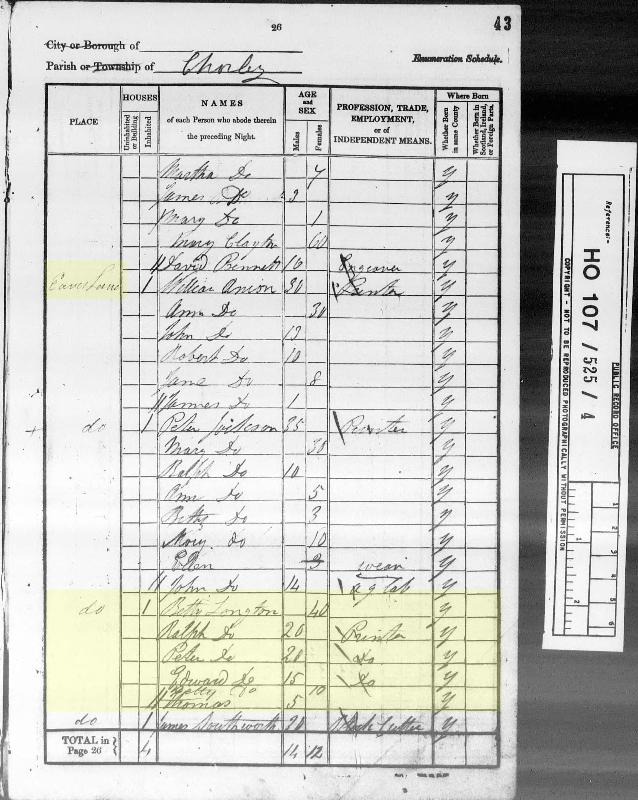 26
43
City or Borough of
Parish or Township of Chorley
Enumeration Schedule.
PLACE
HOUSES
Uninhabited or Building
Inhabited
NAMES
of each Person who abode therein the preceding Night.
AGE and SEX
Males
Females
PROFESSION, TRADE, EMPLOYMENT, or of INDEPENDENT MEANS.
Where Born
Whether Born in same County
Whether Born in Scotland, Ireland, or Foreign Parts.
Martha Do 7 y
James Do 3 y
Mary Do 1 y
Mary Clayton 60 y
David Bennett Engraver y
Eaves Lane 1 William 30 Printer y
Ann Do 30 y
John Do 13 y
Robert Do 10 y
Jane Do 8 y
James Do 1 y
do 1 Peter Jackson 35 Printer y
Mary Do 30 y
Ralph Do 10 y
Ann Do 5 y
Betty Do 3 y
Mary do 10 y
Ellen 3 y
John Do 14 Ag lab y
do 1 Betty Longton 40 y
Ralph Do 20 Printer y
Peter Do 20 Do y
Edward Do 15 Do y
Do 10
Thomas 5 y
do 1 James Southworth 20 Block Cutter y
TOTAL in Page 26 4 14 12
Reference:-
HO 107 / 525 / 4
PUBLIC RECORD OFFICE
COPYRIGHT - NOT TO BE REPRODUCED PHOTOGRAPHICALLY WITHOUT PERMISSION
1
2
1
2
3
4
5
6